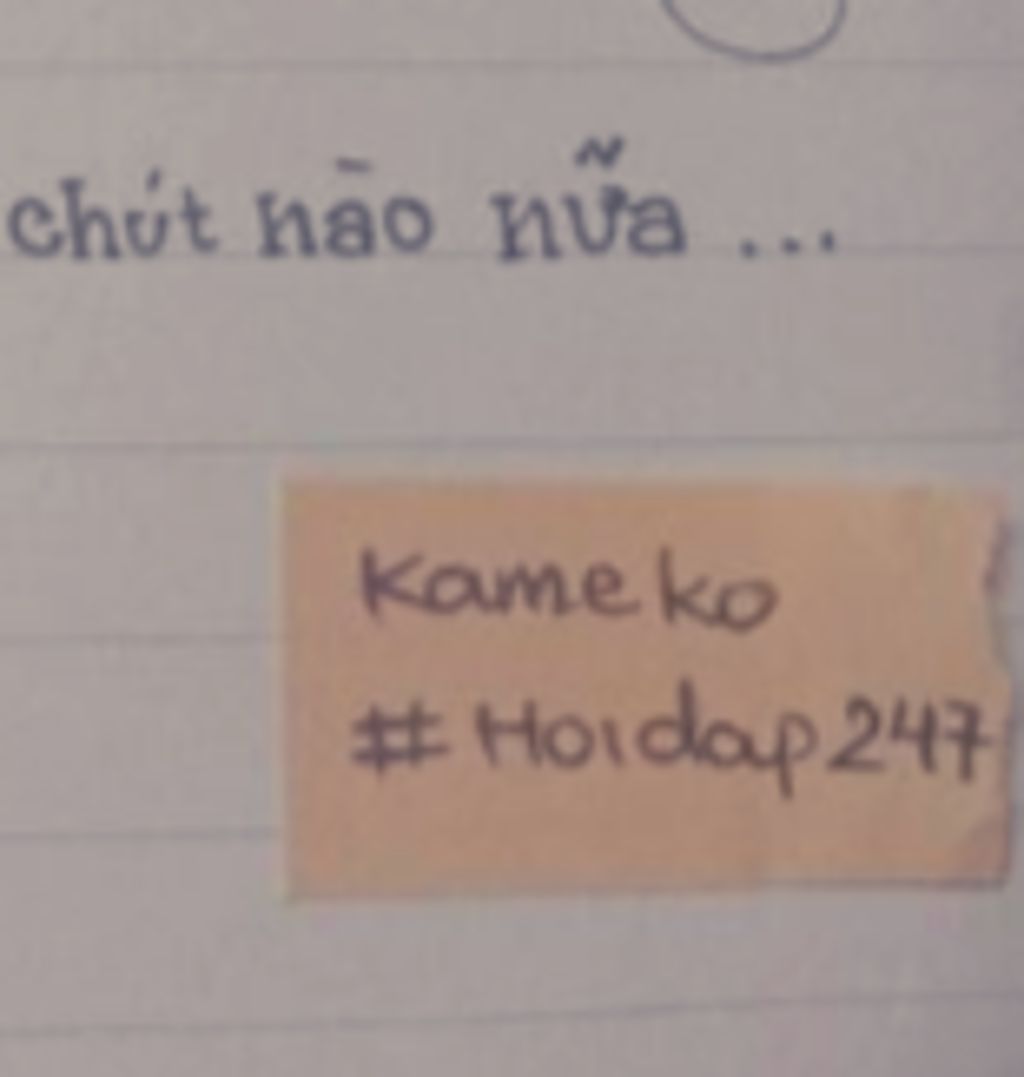 chút nào nữa ...
Kameko
#Hoidap247